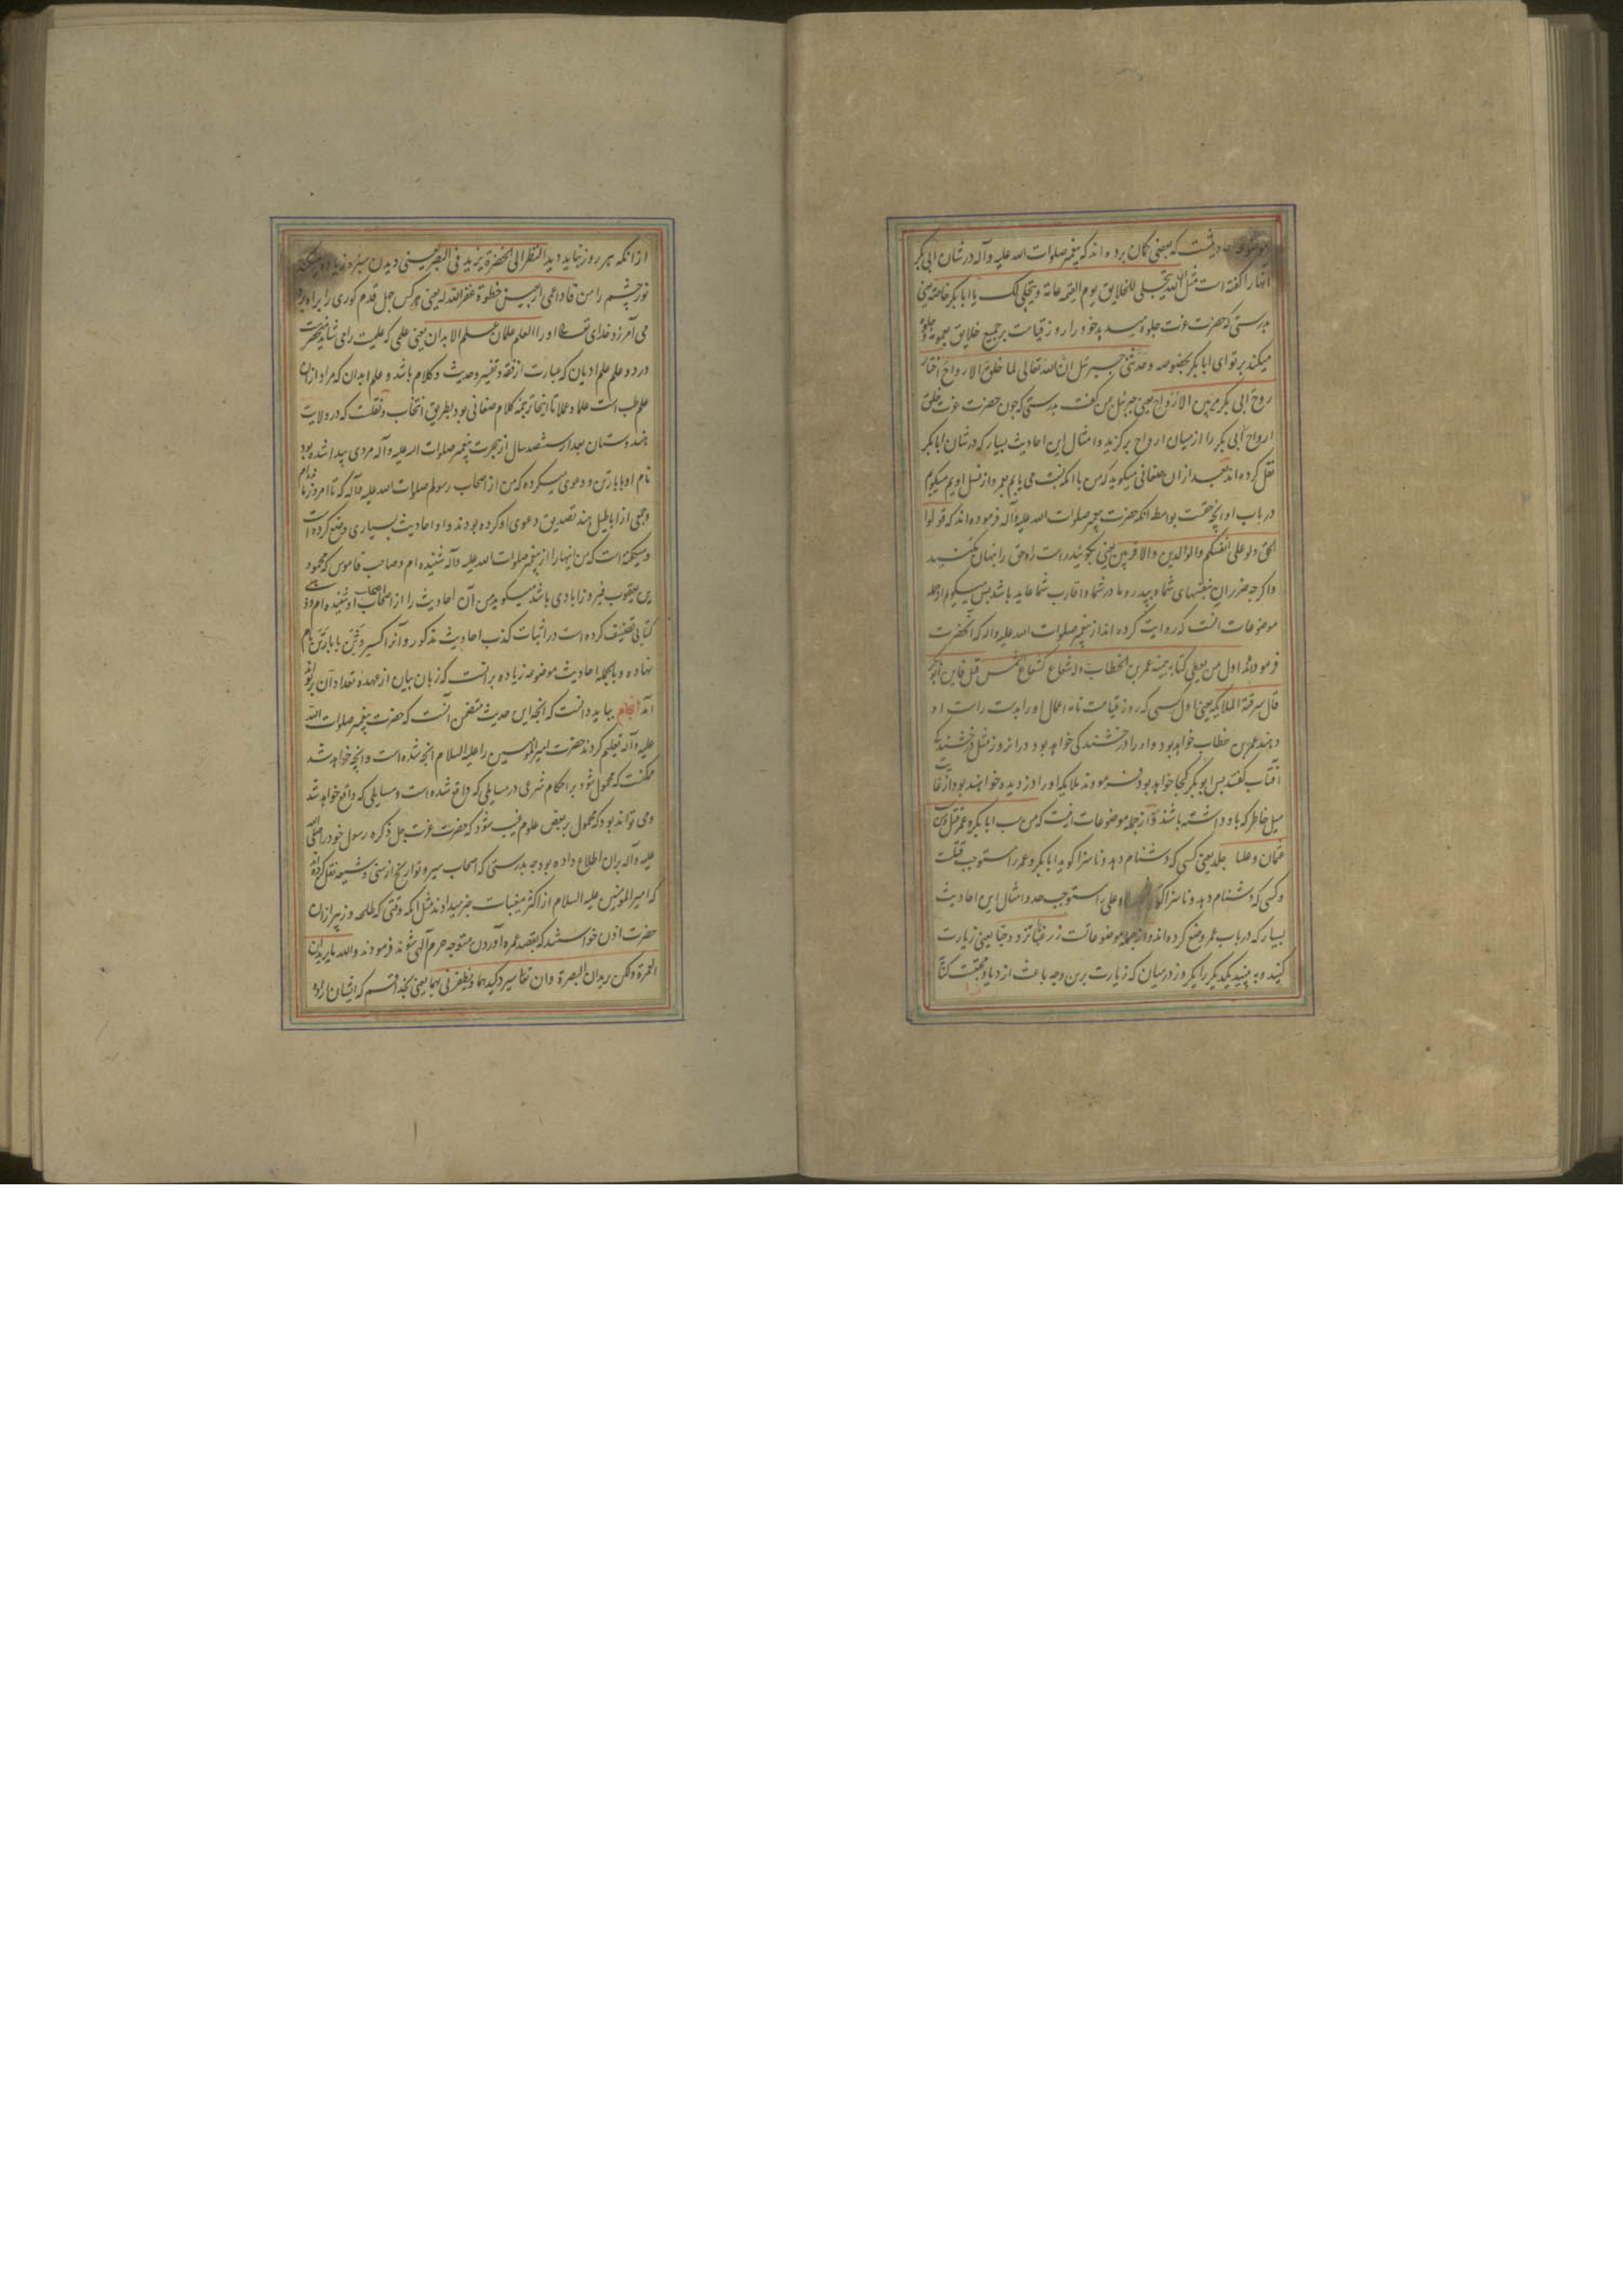 موضوعه احادیثست که بعضی کمان برده اند که پیغمبر صلوات الله علیه وآله در شان ابی بکر
انها را کفته است مثل ان الله یتجلی للخلایق یوم القیمه عامة ویتجلی لک یا ابا بکر خاصة یعنی
بدرستی که حضرت عزت جلوه میدهد خود را روز قیامت بر جمیع خلایق بعموم و جلوه
میکند بر تو ای ابا بکر بخصوصه وحدثنی جبرئیل ان الله تعالی لما خلق الارواح اختار
روح ابی بکر من بین الارواح یعنی جبرئیل بمن کفت بدرستی که چون حضرت عزت خلق
ارواح ابی بکر را از میان ارواح برکزید و امثال این احادیث بسیار که در شان ابا بکر
نقل کرده اند بعد از ان صغانی میکوید که من با انکه نسبت می یابم بعمر و از نسل اویم میکویم
در باب او انچه حقست بواسطه انکه حضرت پیغمبر صلوات الله علیه وآله فرموده اند که قولوا
الحق ولو علی انفسکم والوالدین والاقربین یعنی بکوئید راست را و حق را پنهان مکنید
واکرچه ضرر ان بنفسهای شما و پدر و مادر شما و اقارب شما عاید باشد پس میکویم از جمله
موضوعات انست که روایت کرده اند از پیغمبر صلوات الله علیه واله که انحضرت
فرموده اند اول من یعطی کتابه بیمینه عمر بن الخطاب وله شعاع کشعاع الشمس قیل فاین ابو بکر
قال سرقته الملائکه یعنی اول کسی که روز قیامت نامه اعمال او را بدست راست او
دهند عمر بن خطاب خواهد بود و او را درخشندکی خواهد بود در انروز مثل درخشندکی
افتاب کفتند پس ابو بکر کجا خواهد بود فرمودند ملایکه او را دزدیده خواهند بود از غایت
میل خاطر که باو داشته باشند و از جمله موضوعات اینست که من سب ابا بکر و عمر قتل ومن سب
عثمان وعلیا جلد یعنی کسی که دشنام دهد و ناسزا کوید ابا بکر و عمر را مستوجب قتلست
وکسی که دشنام دهد و ناسزا کوید وعلی را مستوجب حد و امثال این احادیث
بسیار که در باب عمر وضع کرده اند و از جمله موضوعاتست زر غبا تزدد حبا یعنی زیارت
کنید و به بینید یکدیکر را یکروز در میان که زیارت برین وجه باعث ازدیاد محبتست
از انکه هر روز نباید دید النظر الی الخضرة یزید فی البصر یعنی دیدن سبزه زیاده میکند
نور چشم را من قاد اعمی اربعین خطوة غفر الله له یعنی هر کس چهل قدم کوری را براه برد
می آمرزد خدای تعالی او را العلم علمان علم الابدان یعنی علمی که علمیت را می شاید منحصرست
در دو علم علم ادیان که عبارت از فقه و تفسیر و حدیث و کلام باشد و علم ابدان که مراد از ان
علم طب است علما و عملا تا اینجا ترجمه کلام صغانی بود بطریق انتخاب و نقلست که در ولایت
هندوستان بعد از ششصد سال از هجرت پیغمبر صلوات الله علیه وآله مردی پیدا شده بود
نام او بابا رتن و دعوی میکرده که من از اصحاب رسولم صلوات الله علیه وآله که تا امروز مانده ام
وجمعی از اباطیل هند تصدیق دعوی او کرده بودند و او احادیث بسیاری وضع کرده است
و میکفته است که من اینها را از پیغمبر صلوات الله علیه وآله شنیده ام و صاحب قاموس که محمود
بن یعقوب فیروزابادی باشد میکوید من آن احادیث را از اصحاب اصحاب او شنیده ام و ذهبی
کتابی تصنیف کرده است در اثبات کذب احادیث مذکور و آنرا کسر وثن بابا رتن نام
نهاده و بالجمله احادیث موضوعه زیاده برانست که زبان بیان از عهده تعداد آن برتواند
آمد بباید دانست که انچه این حدیث متضمن آنست که حضرت پیغمبر صلوات الله
علیه وآله تعلیم کردند حضرت امیر المؤمنین را علیه السلام انچه شده است و انچه خواهد شد
ممکنست که محمول شود بر احکام شرعی در مسایلی که واقع شده است و مسایلی که واقع خواهد شد
ومی تواند بود که محمول بر بعض علوم غیب شود که حضرت عزت جل ذکره رسول خود را صلی الله
علیه وآله بران اطلاع داده بود چه بدرستی که اصحاب سیر و تواریخ از سنی و شیعه نقل کرده اند
که امیر المؤمنین علیه السلام از اکثر مغیبات خبر میدادند مثل انکه وقتی که طلحه و زبیر از ان
حضرت اذن خواستند که بقصد عمره آوردن متوجه حرم آلهی شوند فرمودند والله ما یریدان
العمرة ولکن یریدان البصرة وان الله تعالی سیرد کیدهما ویظفرنی بهما یعنی بخدا قسم که ایشان اراده